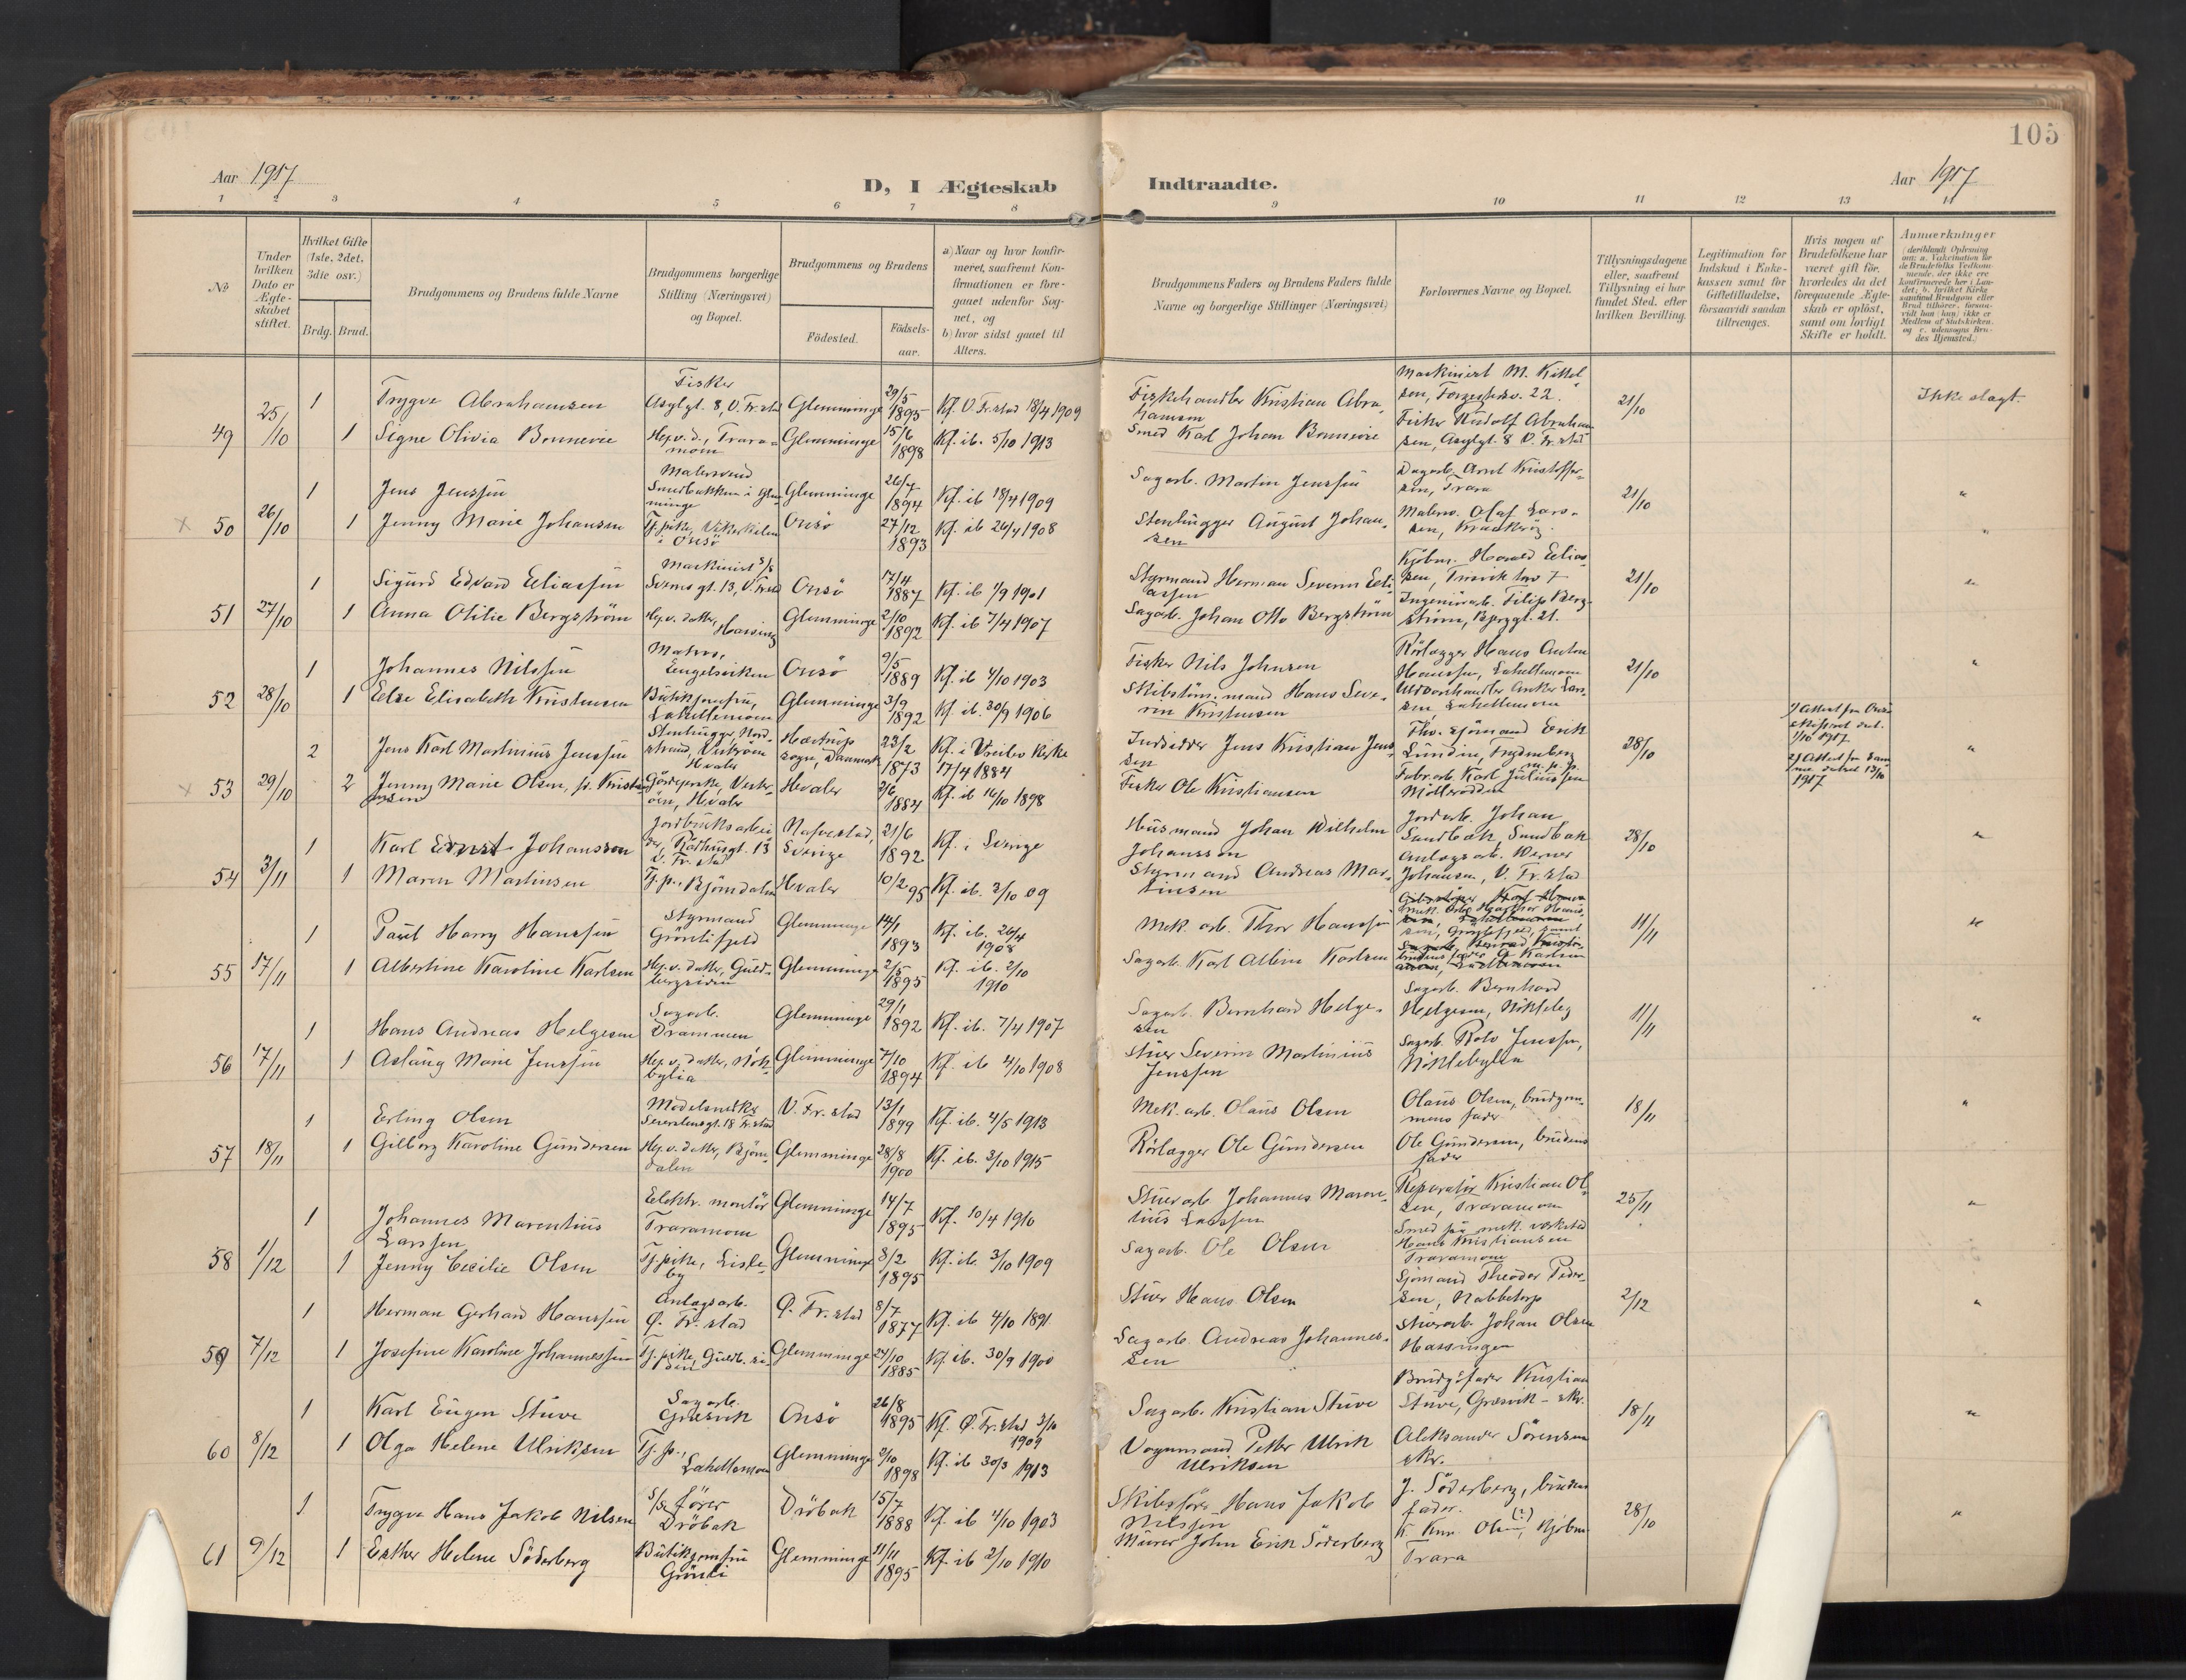 105
Aar 1917
D, I Ægteskab
Indtraadte.
Aar 1917
1 2 3 4 5 6 7 8
9 10 11 12 13 14
No
Under hvilken Dato er Ægte-skabet stiftet.
Hvilket Gifte (1ste, 2det, 3die osv.)
Brdg. Brud.
Brudgommens og Brudens fulde Navne
Brudgommens borgerlige Stilling (Næringsvei) og Bopæl.
Brudgommens og Brudens
Födested.
Födsels-aar.
a) Naar og hvor konfir-meret, saafremt Kon-firmationen er fore-gaaet udenfor Sog-net, og
b) hvor sidst gaaet til Alters.
Brudgommens Faders og Brudens Faders fulde Navne og borgerlige Stillinger (Næringsvei)
Forlovernes Navne og Bopæl.
Tillysningsdagene eller, saafremt Tillysning ei har fundet Sted, efter hvilken Bevilling.
Legitimation for Indskud i Enke-kassen samt for Giftetilladelse, forsaavidt saadan tiltrænges.
Hvis nogen af Brudefolkene har været gift før, hvorledes da det foregaaende Ægte-skab er oplöst, samt om lovligt Skifte er holdt.
Anmærkninger
49 25/10
1 Trygve Abrahamsen Fisker Asylgt. 8, V. Fr.stad Glemminge 29/5 1895 Kf. V. Fr.stad 18/4 1909 Fiskehandler Kristian Abra-hamsen Maskinist M. Kittel-sen, 22. 21/10 Ikke slegt.
1 Signe Olivia Bonnevie Hj.v.d., Trara-moen Glemminge 15/6 1898 Kf. ib. 5/10 1913 Smed Karl Johan Bonnevie Fisker Rudolf Abraham-sen, Asylgt. 8 V. Fr.stad
x 50 26/10
1 Jens Jenssen Malersvend Smedbakken i Glem-minge Glemminge 26/7 1894 Kf. ib 18/4 1909 Sagarb. Martin Jenssen Dagarb. Arnt Kristoffer-sen, Trara 21/10 "
1 Jenny Marie Johansen Tj.pike, i Onsö Onsö 27/12 1893 Kf. ib 26/4 1908 Stenhugger August Johan-sen Malersv. Olaf Lars-sen, "
51 27/10
1 Sigurd Edvard Eliassen Maskinist 13, V. Fr.stad Onsö 17/4 1887 Kf. ib 1/9 1901 Styrmand Herman Severin Eli-assen Kjöbm. Harald Elias-sen, 7 21/10 "
1 Anna Otilie Bergström Hj.v. datter, Glemminge 2/10 1892 Kf. ib 7/4 1907 Sagarb. Johan Otto Bergström Ingeniörarb. Filip Berg-ström, 21.
52 28/10
1 Johannes Nilssen Matros, Engelsviken Onsö 9/5 1889 Kf. ib 4/10 1903 Fisker Nils Johnsen Rörlægger Hans Anton Hanssen, Lahellemoen 21/10 "
1 Else Elisabeth Kristensen Butikjomfru, Lahellemoen Glemminge 3/9 1892 Kf. ib. 30/9 1906 Skibstöm.mand Hans Seve-rin Kristensen Anker Lar-sen Lahellemoen
x 53 29/10
2 Jens Karl Martinius Jenssen Stenhugger, Nord-strand, Vesterøen Hvaler sogn, Danmark 23/2 1873 Kf. i Kirke 17/4 1884 Indsidder Jens Kristian Jens-sen Fhv. sjömand Erik Lundin, 28/10 "
1) Attest fra skifteret dat. 1/10 1917
2) Attest fra sam-me datert 13/10 1917
2 Jenny Marie Olsen, f. Kristi-ansen Vester-öen, Hvaler Hvaler 2/6 1884 Kf. ib 16/10 1898 Fisker Ole Kristiansen Fabr.arb. Karl Juliussen Mölleroddin
54 3/11
1 Karl Ernst Johansson Jordbruksarbei-der, 13 V. Fr.stad Sverige 21/6 1892 Kf. i Sverige Husmand Johan Wilhelm Johansson Jordarb. Johan Sandbæk, Sandbæk 28/10 "
1 Maren Martinsen Tj.p., Björndalen Hvaler 10/2 95 Kf. ib. 3/10 09 Styrmand Andreas Mar-tinsen Anlagsarb. Werner Johansen, V. Fr.stad
55 17/11
1 Paul Harry Hanssen Styrmand Gröntifjeld Glemminge 14/1 1893 Kf. ib. 26/4 1908 Mek. arb. Thor Hanssen 11/11 "
1 Albertine Karoline Karlsen Hj.v. datter, Guld-bergsiden Glemminge 2/5 1895 Kf. ib. 2/10 1910 Sagarb. Karl Albin Karlsen
56 17/11
1 Hans Andreas Helgesen Sagarb. Drammen Glemminge 29/1 1892 Kf. ib. 7/4 1907 Sagarb. Bernhard Helge-sen Sagarb. Bernhard Helgesen, Nökleby 11/11 "
1 Aslaug Marie Jenssen Hj.v. datter, Nök-bylia Glemminge 7/10 1894 Kf. ib 4/10 1908 Stuer Severin Martinius Jenssen Sagarb. Rolv Jenssen, Nöklebylia
57 18/11
1 Erling Olsen Modelsnedker 18 Fr.stad V. Fr.stad 13/1 1899 Kf. ib. 4/5 1913 Mek. arb. Olaus Olsen Olaus Olsen, brudgom-mens fader 18/11 "
1 Gilborg Karoline Gundersen Hj.v. datter, Björn-dalen Glemminge 28/8 1900 Kf. ib. 3/10 1915 Rörlægger Ole Gundersen Ole Gundersen, brudens fader
58 1/12
1 Johannes Marentius Larssen Elektr. montör Traramoen Glemminge 14/7 1895 Kf. 10/4 1910 Stuerarb. Johannes Maren-tius Larssen Reparatör Kristian Ol-sen, Traramoen 25/11 "
1 Jenny Cecilie Olsen Tj.pike, Lisle-by Glemminge 8/2 1895 Kf. ib. 3/10 1909 Sagarb. Ole Olsen Smed på mek. verksted Hans Kristiansen Traramoen
59 7/12
1 Herman Gerhard Hanssen Anlagsarb. Ø. Fr.stad Ø. Fr.stad 8/7 1877 Kf. ib 4/10 1891 Stuer Hans Olsen Sjömand Theodor Peder-sen, Nabbetorp 2/12 "
1 Josefine Karoline Johannessen Tj.pike, Guldb.si-den Glemminge 24/10 1885 Kf. ib. 30/9 1900 Sagarb. Andreas Johannes-sen Stuerarb. Johan Olsen Hassingen
60 8/12
1 Karl Eugen Stuve Sagarb. Græsvik Onsö 26/8 1895 Kf. Ø. Fr.stad 3/10 1909 Sagarb. Kristian Stuve Brudg.s fader Kristian Stuve, Græsvik - skr. 18/11 "
1 Olga Helene Ulriksen Tj.p., Lahellemoen Glemminge 2/10 1898 Kf. ib 30/3 1913 Vognmand Petter Ulrik Ulriksen Aleksander Sörensen skr.
61 9/12
1 Trygve Hans Jakob Nilsen S/S förer Dröbak Dröbak 15/7 1888 Kf. ib 4/10 1903 Skibsförer Hans Jakob Nilssen J. Söderberg, brudens fader. 28/10 "
1 Esther Helene Söderberg Butikjomfru Grönli Glemminge 11/11 1895 Kf. ib 2/10 1910 Murer John Erik Söderberg Olsen, (?) Kjöbm Trara